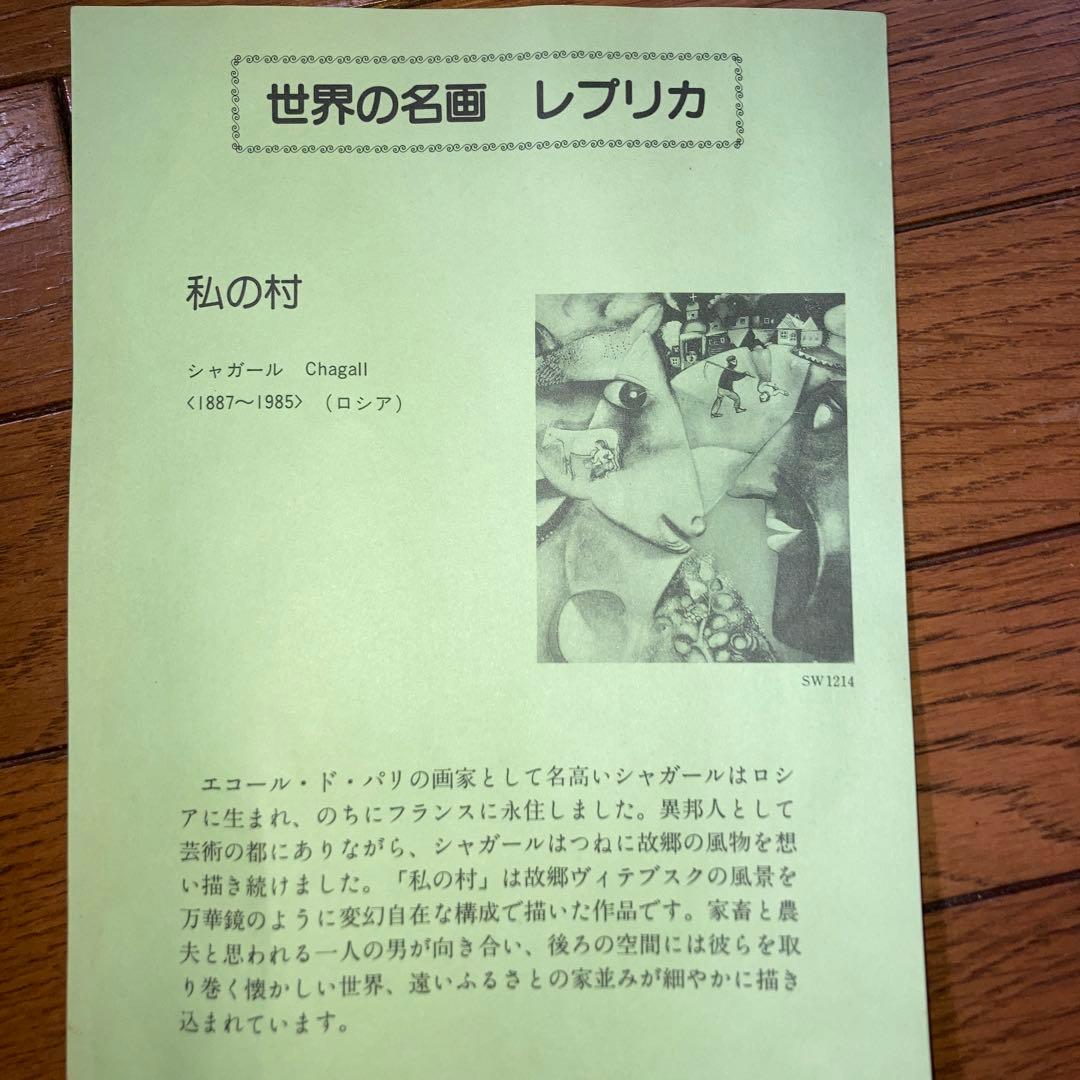 世界の名画　レプリカ
私の村
シャガール　Chagall
〈1887〜1985〉（ロシア）
SW1214
エコール・ド・パリの画家として名高いシャガールはロシ
アに生まれ、のちにフランスに永住しました。異邦人として
芸術の都にありながら、シャガールはつねに故郷の風物を想
い描き続けました。「私の村」は故郷ヴィテブスクの風景を
万華鏡のように変幻自在な構成で描いた作品です。家畜と農
夫と思われる一人の男が向き合い、後ろの空間には彼らを取
り巻く懐かしい世界、遠いふるさとの家並みが細やかに描き
込まれています。